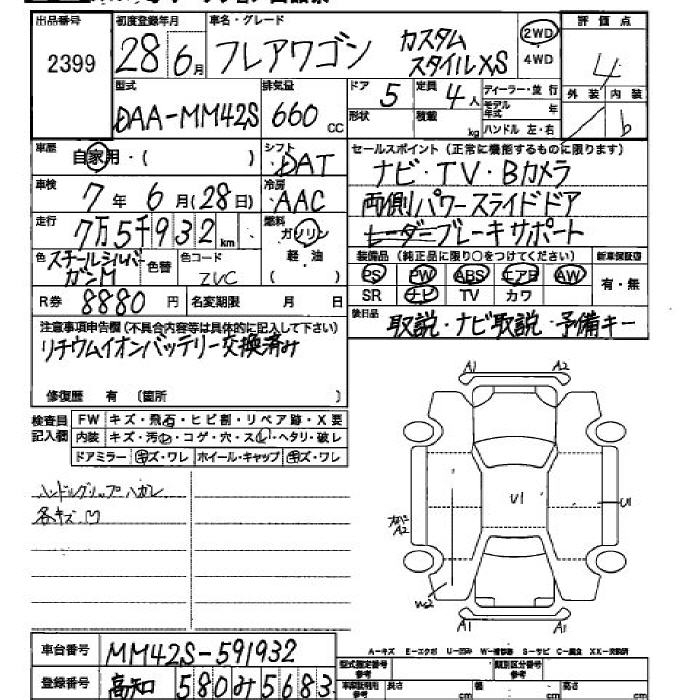 出品番号 初度登録年月 車名・グレード 評価点
2399 28 6月 フレアワゴン カスタムスタイルXS 2WD 4WD 4
型式 排気量 ドア 定員 ディーラー・並行 外装 内装
DAA-MM42S 660cc 5 4人 モデル年式 年 b
形状 積載 kg ハンドル 左・右
車歴 自家用・( ) シフト DAT
セールスポイント(正常に機能するものに限ります)
車検 7年 6月(28日) 冷房 AAC
ナビ・TV・Bカメラ
両側パワースライドドア
走行 7万5千932km 燃料 ガソリン 軽油
レーダーブレーキサポート
色 スチールシルバーガンM 色替 色コード ZVC
装備品(純正品に限り○をつけてください) 新車保証書
PS PW ABS エアB AW 有・無
SR ナビ TV カワ
R券 8880円 名変期限 月 日
後日品 取説・ナビ取説・予備キー
注意事項申告欄(不具合内容等は具体的に記入して下さい)
リチウムイオンバッテリー交換済み
修復歴 有 〔箇所 〕
検査員記入欄 FW キズ・飛石・ヒビ割・リペア跡・X要
内装 キズ・汚れ・コゲ・穴・スレ・ヘタリ・破レ
ドアミラー キズ・ワレ ホイール・キャップ キズ・ワレ
ハンドルグリップハガレ
各キズ.凹
A1 A2
U1 U1
A2
W2
A1 A1
A-キズ E-エクボ U-凹み W-補修跡 S-サビ C-腐食 XX-交換済
車台番号 MM42S-591932
型式指定番号 参考 類別区分番号 参考
登録番号 高知 580 み 5683
車庫証明用 参考 長さ cm 幅 cm 高さ cm